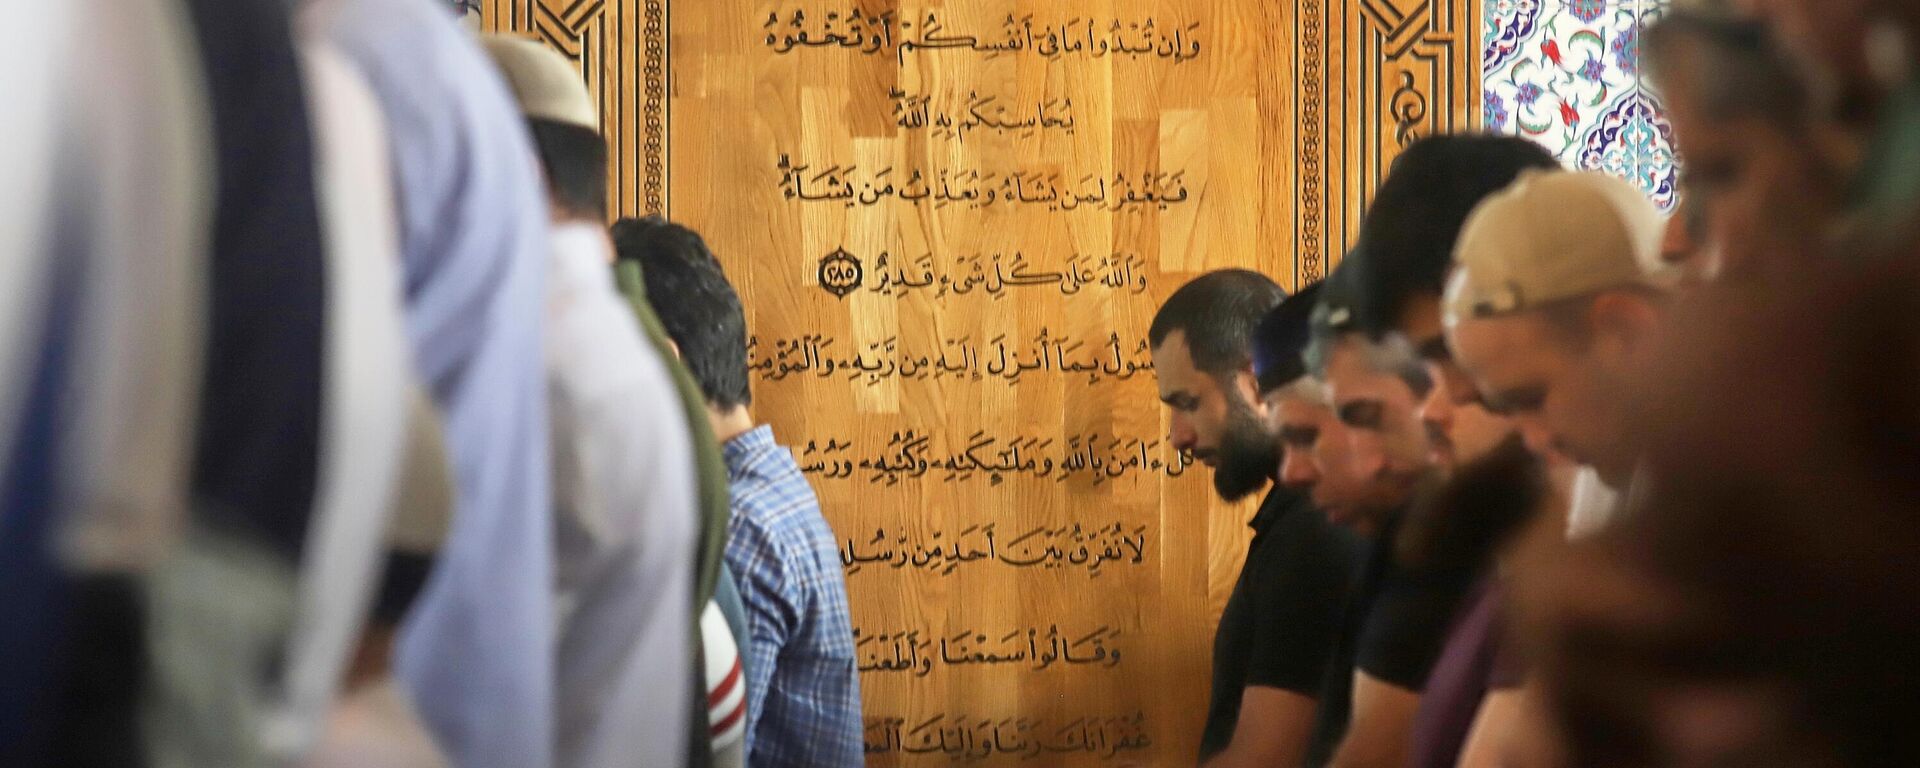 وَإِن تُبْدُوا۟ مَا فِىٓ أَنفُسِكُمْ أَوْ تُخْفُوهُ
يُحَاسِبْكُم بِهِ ٱللَّهُ ۖ
فَيَغْفِرُ لِمَن يَشَآءُ وَيُعَذِّبُ مَن يَشَآءُ ۗ
وَٱللَّهُ عَلَىٰ كُلِّ شَىْءٍ قَدِيرٌ ٢٨٥
بِمَآ أُنزِلَ إِلَيْهِ مِن رَّبِّهِۦ
كُلٌّ ءَامَنَ بِٱللَّهِ وَمَلَـٰٓئِكَتِهِۦ وَكُتُبِهِۦ
لَا نُفَرِّقُ بَيْنَ أَحَدٍ مِّن رُّسُلِهِ
وَقَالُوا۟ سَمِعْنَا وَأَطَعْنَا
غُفْرَانَكَ رَبَّنَا وَإِلَيْكَ